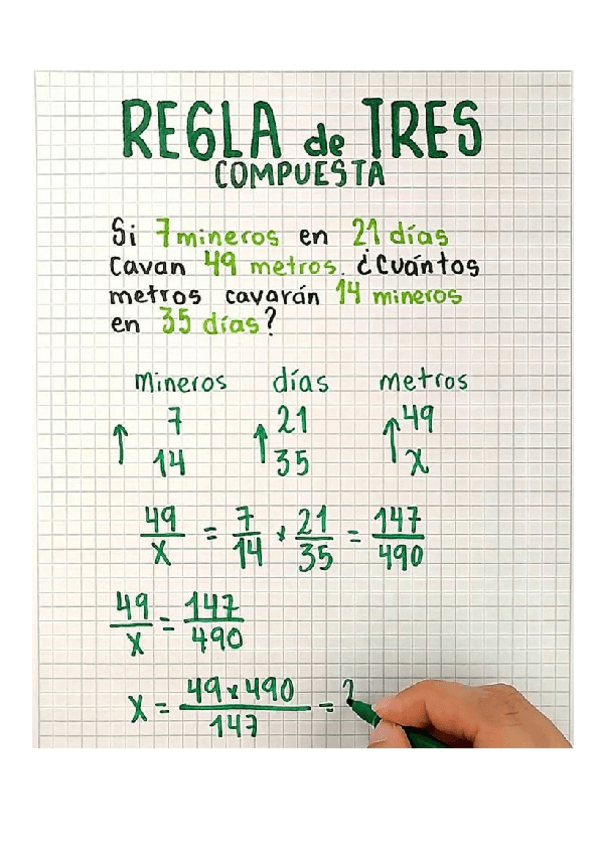 REGLA de TRES
COMPUESTA
Si 7 mineros en 21 días
Cavan 49 metros. ¿Cuántos
metros cavarán 14 mineros
en 35 días?
mineros días metros
↑ 7 ↑ 21 ↑ 49
14 35 x
49/x = 7/14 x 21/35 = 147/490
49/x = 147/490
x = 49 x 490/147 =